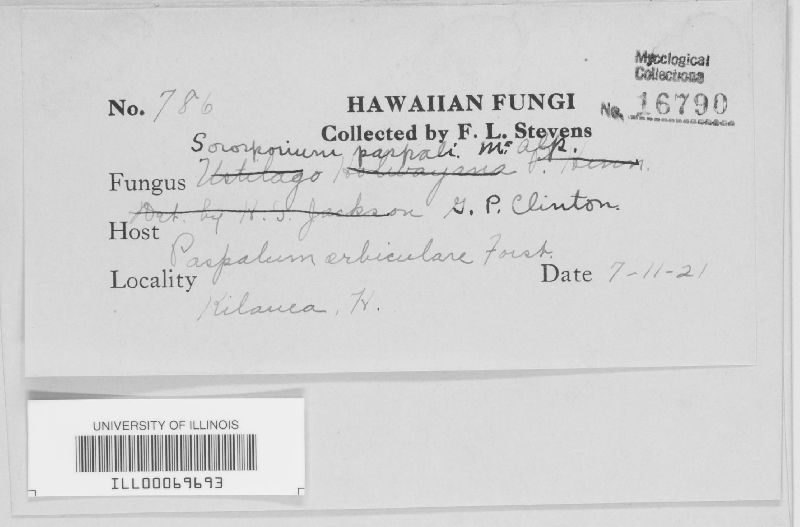 Mycological
Collections
No. 16790
No. 786
HAWAIIAN FUNGI
Collected by F. L. Stevens
Sorosporium paspali. Mc Alp.
Fungus Ustilago P. Henn.
Det. by H. S. Jackson G. P. Clinton.
Host
Paspalum orbiculare Forst.
Locality Date 7-11-21
Kilauea, H.
UNIVERSITY OF ILLINOIS
ILL00069693